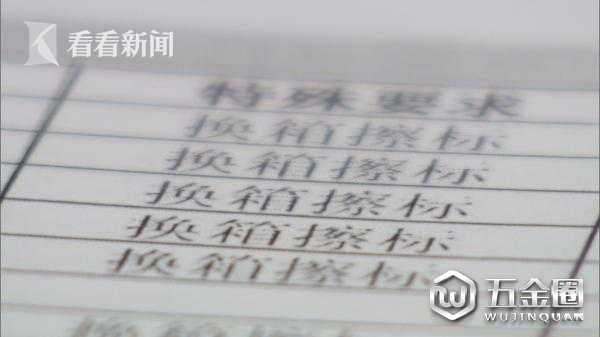 看看新闻
特殊要求
换箱擦标
换箱擦标
换箱擦标
换箱擦标
换箱擦标
五金圈
WUJINQUAN